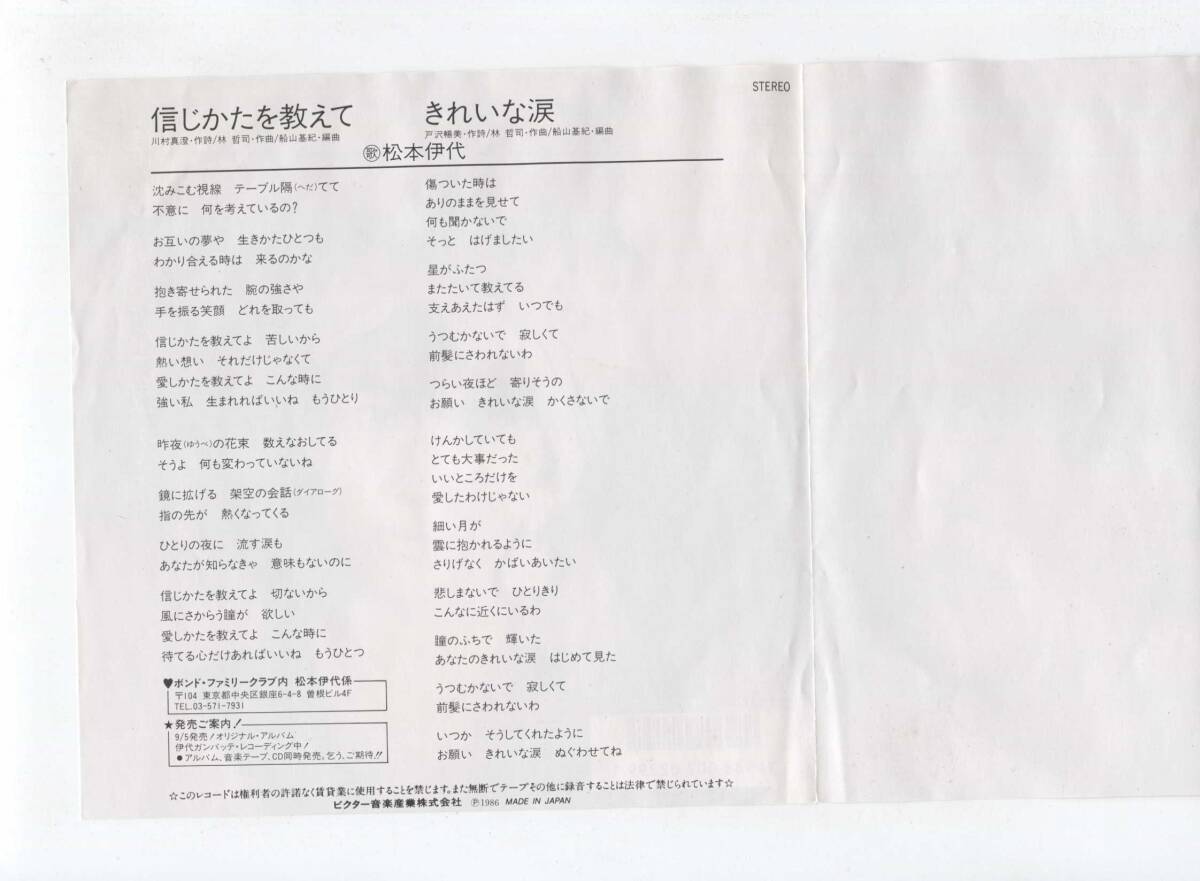 STEREO
信じかたを教えて
川村真澄・作詩/林 哲司・作曲/船山基紀・編曲
きれいな涙
戸沢暢美・作詩/林 哲司・作曲/船山基紀・編曲
歌 松本伊代
沈みこむ視線 テーブル隔(へだ)てて
不意に 何を考えているの?
お互いの夢や 生きかたひとつも
わかり合える時は 来るのかな
抱き寄せられた 腕の強さや
手を振る笑顔 どれを取っても
信じかたを教えてよ 苦しいから
熱い想い それだけじゃなくて
愛しかたを教えてよ こんな時に
強い私 生まれればいいね もうひとり
昨夜(ゆうべ)の花束 数えなおしてる
そうよ 何も変わっていないね
鏡に拡げる 架空の会話(ダイアローグ)
指の先が 熱くなってくる
ひとりの夜に 流す涙も
あなたが知らなきゃ 意味もないのに
信じかたを教えてよ 切ないから
風にさからう瞳が 欲しい
愛しかたを教えてよ こんな時に
待てる心だけあればいいね もうひとつ
♥ボンド・ファミリークラブ内 松本伊代係
〒104 東京都中央区銀座6-4-8 曽根ビル4F
TEL.03-571-7931
★発売ご案内!
9/5発売!オリジナル・アルバム
伊代ガンバッテ・レコーディング中!
●アルバム、音楽テープ、CD同時発売。乞う、ご期待!!
傷ついた時は
ありのままを見せて
何も聞かないで
そっと はげましたい
星がふたつ
またたいて教えてる
支えあえたはず いつでも
うつむかないで 寂しくて
前髪にさわれないわ
つらい夜ほど 寄りそうの
お願い きれいな涙 かくさないで
けんかしていても
とても大事だった
いいところだけを
愛したわけじゃない
細い月が
雲に抱かれるように
さりげなく かばいあいたい
悲しまないで ひとりきり
こんなに近くにいるわ
瞳のふちで 輝いた
あなたのきれいな涙 はじめて見た
うつむかないで 寂しくて
前髪にさわれないわ
いつか そうしてくれたように
お願い きれいな涙 ぬぐわせてね
☆このレコードは権利者の許諾なく賃貸業に使用することを禁じます。また無断でテープその他に録音することは法律で禁じられています☆
ビクター音楽産業株式会社 Ⓟ1986 MADE IN JAPAN